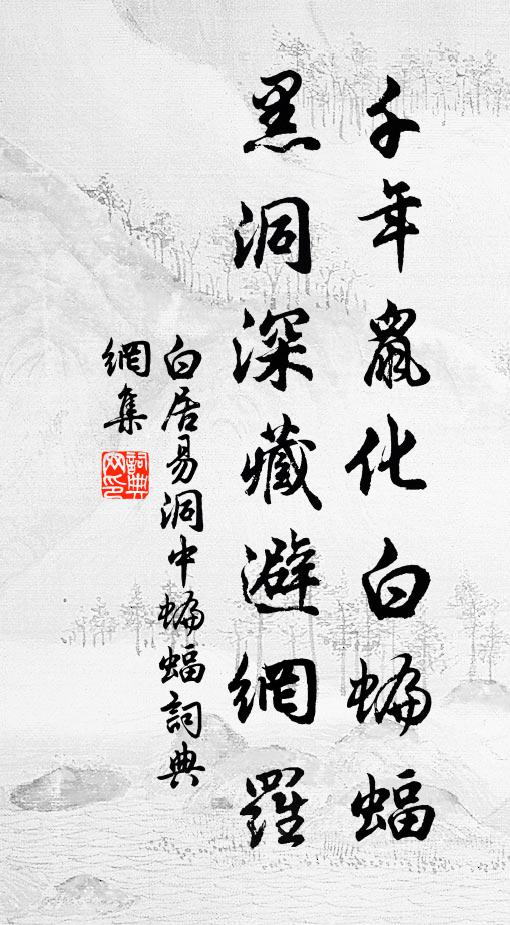 千年鼠化白蝙蝠
黑洞深藏避網羅
白居易洞中蝙蝠詞典
網集
詞典網印